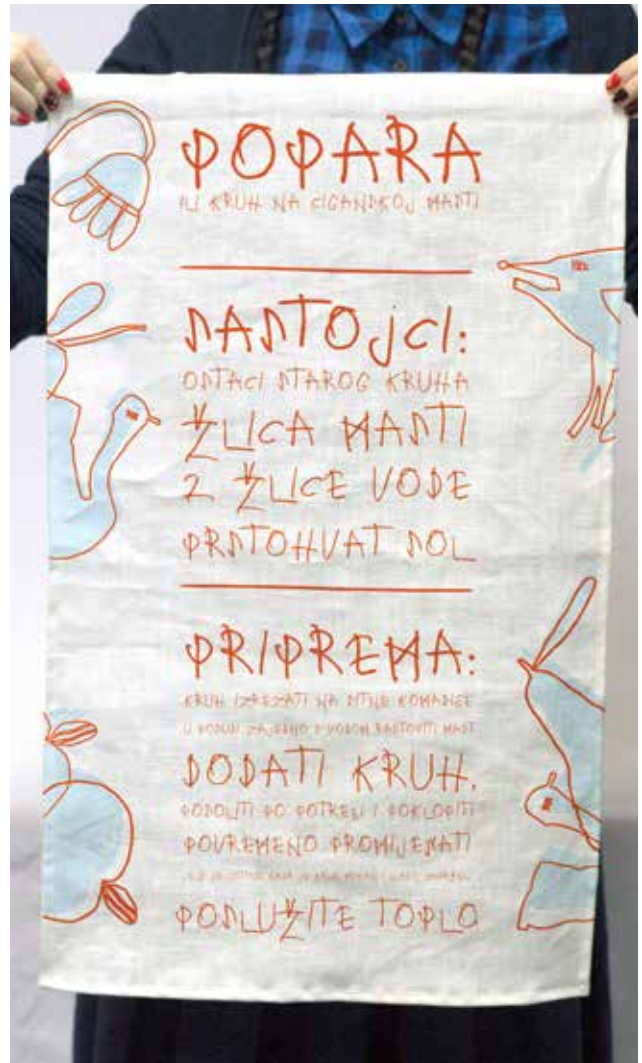 POPARA
ILI KRUH NA CIGANSKOJ MASTI
SASTOJCI:
OSTACI STAROG KRUHA
ŽLICA MASTI
2 ŽLICE VODE
PRSTOHVAT SOL
PRIPREMA:
KRUH IZREZATI NA SITNE KOMADIĆE
U POSUDI ZAJEDNO S VODOM RASTOPITI MAST
DODATI KRUH.
POSOLITI PO POTREBI I POKLOPITI
POVREMENO PROMIJEŠATI
POSLUŽITE TOPLO